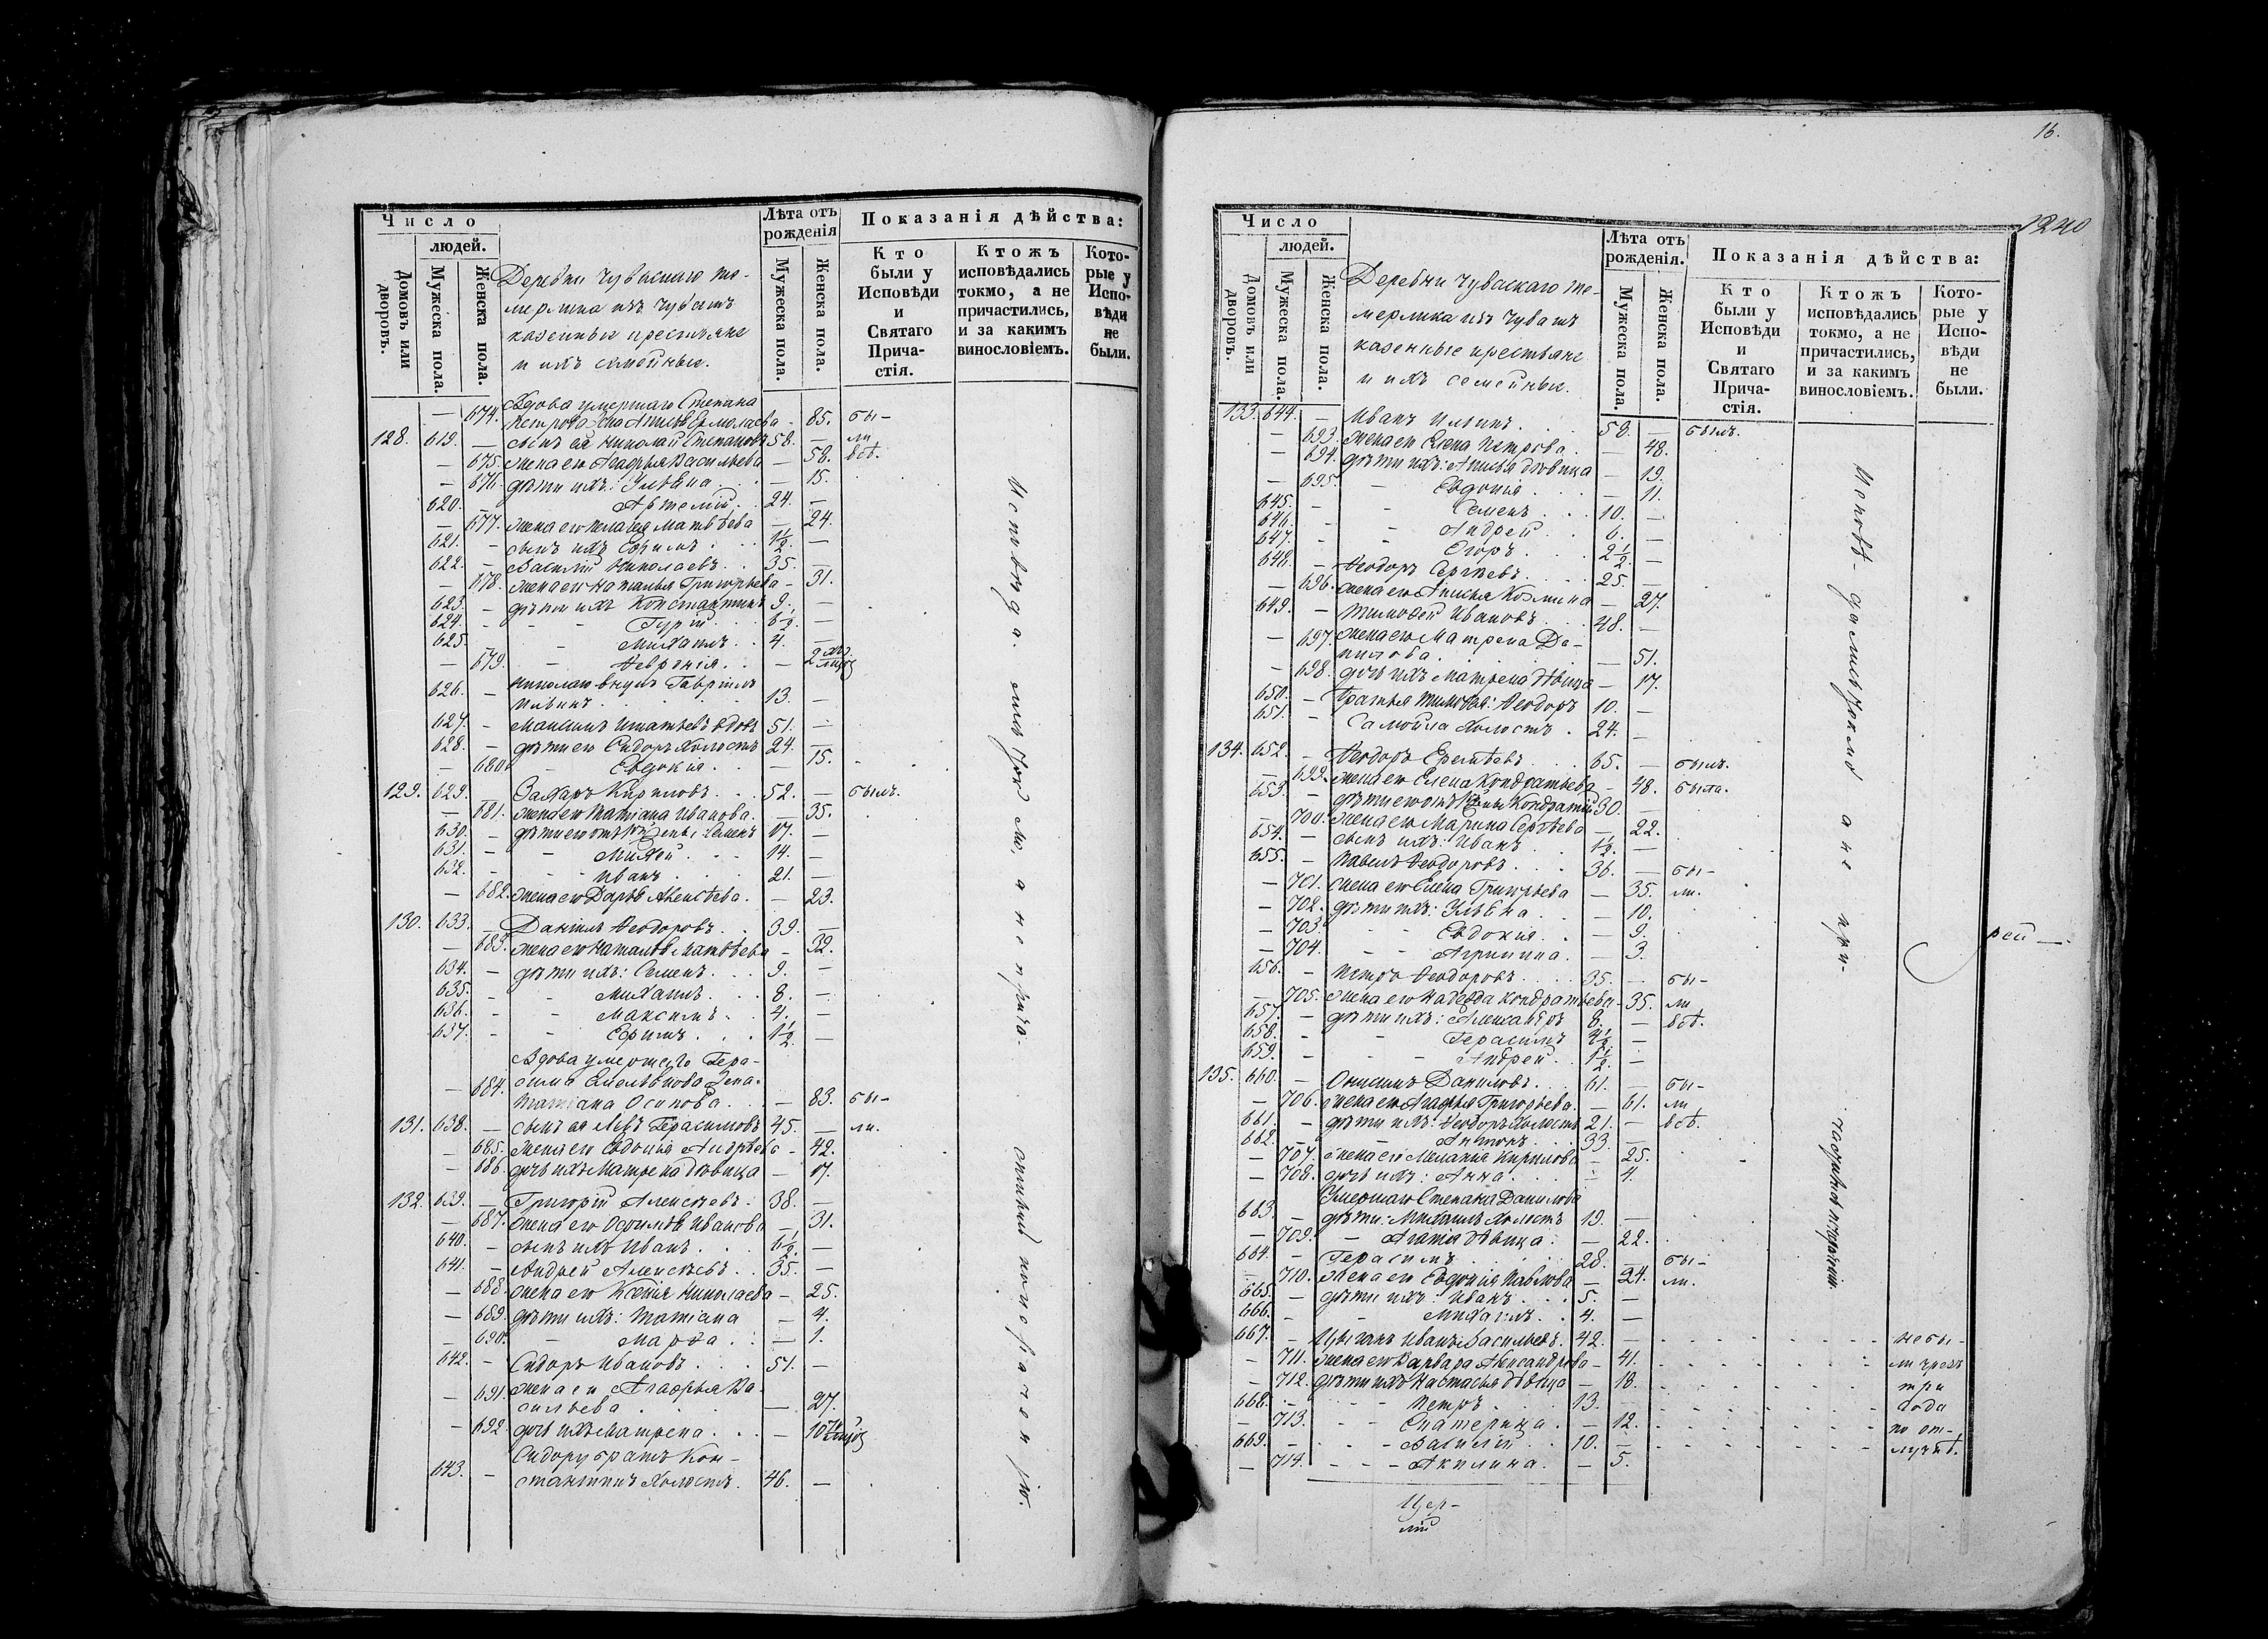 Число
людей.
Домовъ или дворовъ.
Мужеска пола.
Женска пола.
Деревни Чуваскаго Те-
мерлика изъ Чувашъ
казенныи крестьяне
и ихъ семейныи.
Лѣта отъ рожденія
Мужеска пола.
Женска пола.
Показанія дѣйства:
Кто были у Исповѣди и Святаго Прича-стія.
Ктожъ исповѣдались токмо, а не причастились, и за какимъ винословіемъ.
Кото-рые у Испо-вѣди не были.
Вдова умершаго Степана
— 674. Петрова жена Ермолаева - 85. бы-
128. 619. — сынъ ея Николай Степановъ 58. — ли
— 675. жена его Агафья Васильева — 58. всѣ.
— 676. дѣти ихъ: Ульяна — 15.
620. — Артемій 24. —
— 677. жена его Пелагея Матвѣева — 24.
621. — сынъ ихъ Ефимъ 1½. —
622. — Василій Николаевъ 35. —
— 678. жена его Наталья Григорьева - 31.
623. — дѣти ихъ Константинъ 9. —
624. - - Гурій 6½. —
625. Михаилъ 4. —
— 679. - Февронія — 2
Николаю внукъ Гавріилъ
626. — Ильинъ 13. —
627. - Максимъ Игнатьевъ вдовъ 51. —
628. - дѣти его Сидоръ холостъ 24. —
— 680. - Евдокія — 15.
129. 629. — Захаръ Кириловъ 52. — былъ.
— 681. жена его Татіана Иванова — 35.
630. — дѣти его отъ жены: Семенъ 17. —
631. - - Михей 14. —
632. - - Иванъ 21. —
— 682. жена его Дарья Алексѣева. — 23.
130. 633. — Даніилъ Ѳеодоровъ 39. —
— 683. жена его Наталья Матвѣева - 32.
634. — дѣти ихъ: Семенъ 9. —
635. - - Михаилъ 8. —
636. - - Максимъ 4. —
637. - - Ефимъ 1½. —
Вдова умершаго Гера-
сима Емельянова жена
— 684. Татіана Осипова — 83. бы-
131. 638. — сынъ ея Левъ Герасимовъ 45. — ли.
— 685. жена его Евдокія Андрѣева - 42.
— 686. дочь ихъ Матрена дѣвица — 17.
132. 639. — Григорій Алексѣевъ 38. —
— 687. жена его Иванова — 31.
640. — сынъ ихъ Иванъ 6½. —
641. — Андрей Алексѣевъ 35. —
— 688. жена его Ксенія Николаева - 25.
— 689. дѣти ихъ: Татіана — 4.
— 690. - Марѳа — 1.
642. - Сидоръ Ивановъ 51. —
— 691. жена его Агафья Ва-
сильева — 27.
— 692. дочь ихъ Матрена — 10
Сидору братъ Кон-
643. — стантинъ холостъ. 46. —
16.
1240
Число
людей.
Домовъ или дворовъ.
Мужеска пола.
Женска пола.
Деревни Чуваскаго Те-
мерлика изъ Чувашъ
казенные крестьяне
и ихъ семейныи.
Лѣта отъ рожденія.
Мужеска пола.
Женска пола.
Показанія дѣйства:
Кто были у Исповѣди и Святаго Прича-стія.
Ктожъ исповѣдались токмо, а не причастились, и за какимъ винословіемъ.
Кото-рые у Испо-вѣди не были.
133. 644. — Иванъ Ильинъ 58. — былъ.
— 693. жена его Елена Петрова — 48.
— 694. дѣти ихъ: дѣвица — 19.
— 695. - Евдокія — 11.
645. - - Семенъ 10. —
646. - - Андрей 6. —
647. - - Егоръ 2½. —
648. - Ѳеодоръ Сергѣевъ 25. —
— 696. жена его Анисья Козмина — 27.
649. — Тимоѳей Ивановъ 48. —
— 697. жена его Матрена Да-
нилова — 51.
— 698. дочь ихъ Матрена дѣвица — 17.
650. — братья Тимоѳея: Ѳеодоръ 10. —
651. - Самойла холостъ 24. —
134. 652. — Ѳеодоръ 65. — былъ.
— 699. жена его Елена Кондратьева - 48. была.
653. — дѣти его отъ жены Кондратій 30. —
— 700. жена его Марина Сергѣева — 22.
654. — сынъ ихъ: Иванъ 1½. —
655. — Павелъ Ѳеодоровъ 36. — бы-
— 701. жена его Елена Григорьева — 35. ли.
— 702. дѣти ихъ: Ульяна — 10.
— 703. - - Евдокія — 9.
— 704. - - Агрипина — 3.
656. — Петръ Ѳеодоровъ 35. — бы-
— 705. жена его Надежда Кондратьева - 35. ли
657. — дѣти ихъ: Александръ 8. — всѣ.
658. - - Герасимъ —
659. - - Андрей 1½. —
135. 660. — Онисимъ Даниловъ 61. — бы-
— 706. жена его Агафья Григорьева. — 61. ли
661. — дѣти ихъ: Ѳеодоръ холостъ 21. — всѣ.
662. — - 33. —
— 707. жена его Меланія Кирилова — 25.
— 708. дочь ихъ: Анна — 4.
Умершаго Степана Данилова
663. — дѣти: Михаилъ холостъ 19. —
— 709. - Агаѳія дѣвица — 22.
664. — Герасимъ 28. — бы-
— 710. жена его Евдокія Павлова — 24. ли.
665. — дѣти ихъ: Иванъ 5. —
666. - Михаилъ 4. —
667. — Цыганъ Иванъ Васильевъ. 42. — не бы-
— 711. жена его Варвара Александрова - 41. ли чрезъ
— 712. дѣти ихъ Настасья дѣвица — 18. три
668. - - Петръ 13. — года
— 713. - - Екатерина — 12. по от-
669. - - Василій 10. — лучкѣ.
— 714. - - Акилина — 5.
Цер-
рей —